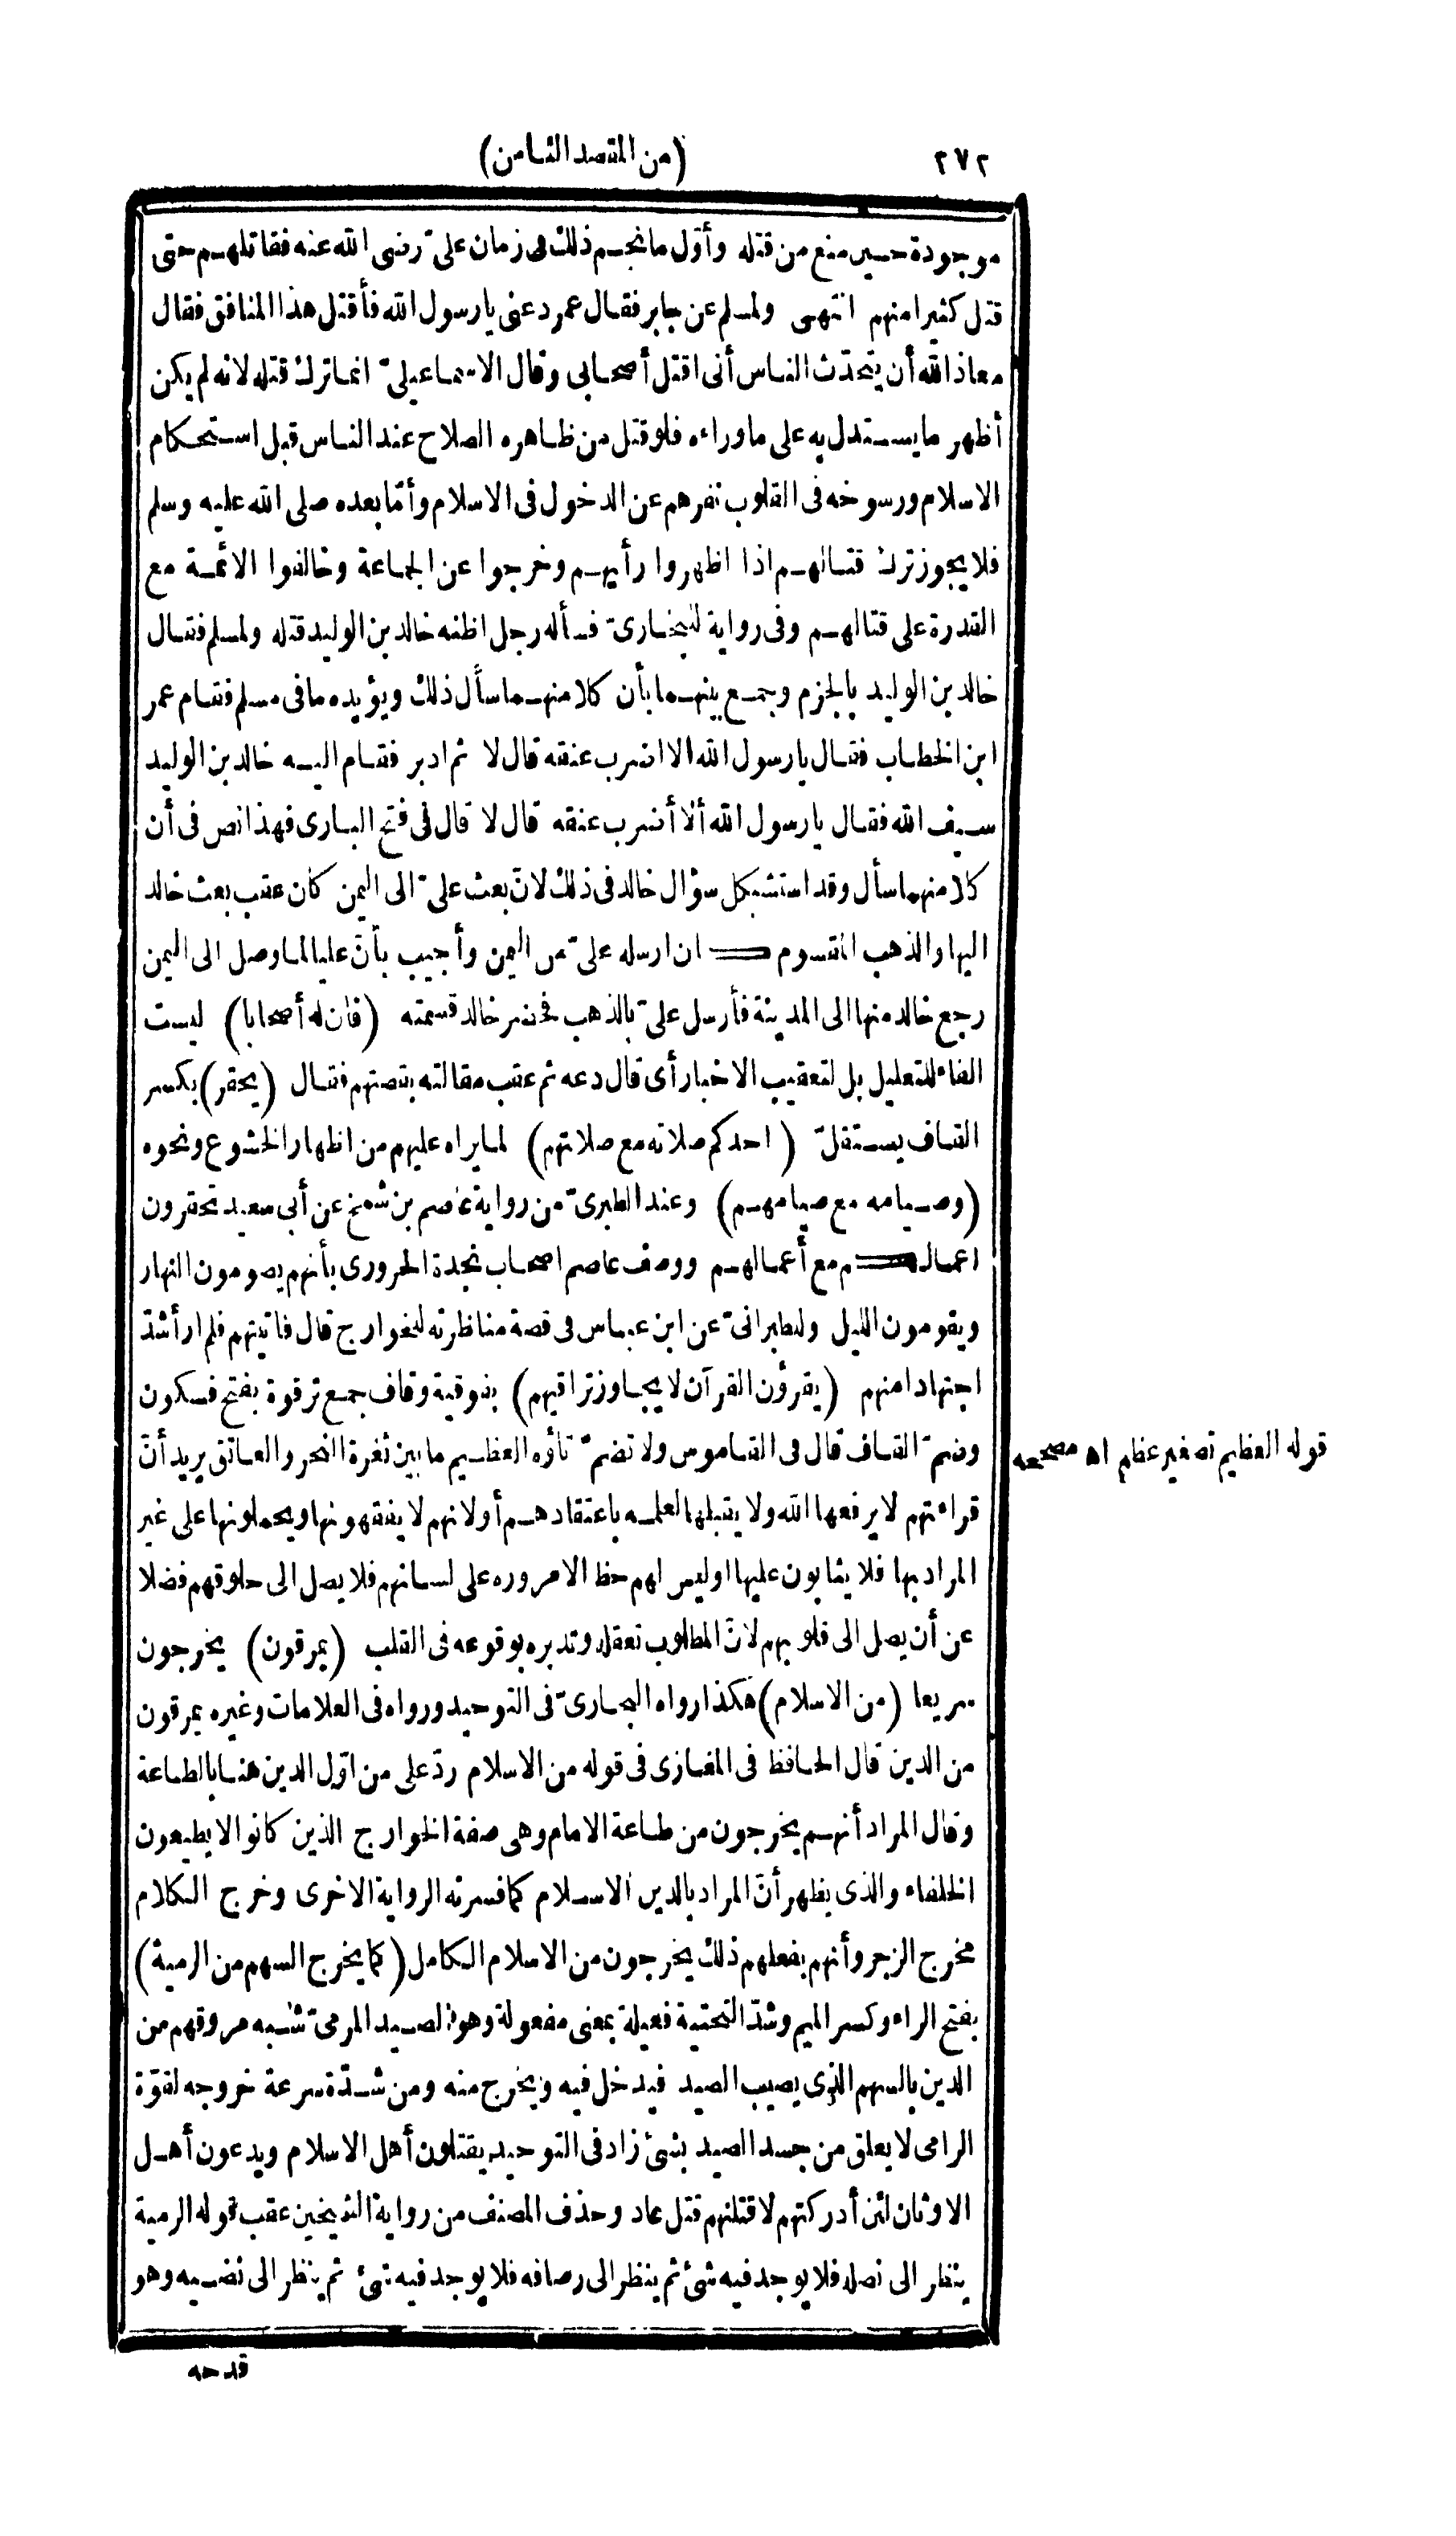 ٢٧٢
(من المقصد الثامن)
موجودة حسبر منع من قتله وأول ما نجم ذلك فى زمان علىّ رضى الله عنه فقاتلهم حتى
قتل كثيرا منهم انتهى ولمسلم عن جابر فقال عمر دعنى يا رسول الله فأقتل هذا المنافق فقال
معاذ الله أن يتحدّث الناس أنى اقتل أصحابى وقال الاسماعيلىّ انما ترك قتله لانه لم يكن
أظهر ما يستدل به على ما وراءه فلو قتل من ظاهره الصلاح عند الناس قبل استحكام
الاسلام ورسوخه فى القلوب نفرهم عن الدخول فى الاسلام وأمّا بعده صلى الله عليه وسلم
فلا يجوز ترك قتالهم اذا اظهروا رأيهم وخرجوا عن الجماعة وخالفوا الائمة مع
القدرة على قتالهم وفى رواية للبخارىّ فسأله رجل اظنه خالد بن الوليد قتله ولمسلم فقال
خالد بن الوليد بالجزم وجمع بينهما بأن كلا منهما سأل ذلك ويؤيده ما فى مسلم فقام عمر
ابن الخطاب فقال يا رسول الله الا اضرب عنقه قال لا ثم ادبر فقام اليه خالد بن الوليد
سيف الله فقال يا رسول الله ألا أضرب عنقه قال لا قال فى فتح البارى فهذا نص فى أن
كلا منهما سأل وقد استشكل سؤال خالد فى ذلك لانّ بعث علىّ الى اليمن كان عقب بعث خالد
اليها والذهب المقسوم كان ارسله علىّ من اليمن وأجيب بأنّ عليا لما وصل الى اليمن
رجع خالد منها الى المدينة فأرسل علىّ بالذهب فحضر خالد قسمته (فان له أصحابا) ليست
الفاء للتعليل بل لتعقيب الاخبار أى قال دعه ثم عقب مقالته بقصتهم فقال (يحقر) بكسر
القاف يستقلّ (احدكم صلاته مع صلاتهم) لما يراه عليهم من اظهار الخشوع ونحوه
(وصيامه مع صيامهم) وعند الطبرىّ من رواية عاصم بن شمخ عن أبى سعيد تحقرون
اعمالكم مع أعمالهم ووصف عاصم اصحاب نجدة الحرورى بأنهم يصومون النهار
ويقومون الليل وللطبرانىّ عن ابن عباس فى قصة مناظرته للخوارج قال فاتيتهم فلم ار أشدّ
اجتهادا منهم (يقرؤن القرآن لا يجاوز تراقيهم) بفوقية وقاف جمع ترقوة بفتح فسكون
وضمّ القاف قال فى القاموس ولا تضمّ تاؤه العظيم ما بين ثغرة النحر والعاتق يريد أنّ
قراءتهم لا يرفعها الله ولا يقبلها لعلمه باعتقادهم أو لانهم لا يفقهونها ويحملونها على غير
المراد بها فلا يثابون عليها اوليس لهم حظ الا مروره على لسانهم فلا يصل الى حلوقهم فضلا
عن أن يصل الى قلوبهم لانّ المطلوب تعقله وتدبره بوقوعه فى القلب (يمرقون) يخرجون
سريعا (من الاسلام) هكذا رواه البخارىّ فى التوحيد ورواه فى العلامات وغيره يمرقون
من الدين قال الحافظ فى المغازى فى قوله من الاسلام ردّ على من اوّل الدين هنا بالطاعة
وقال المراد أنهم يخرجون من طاعة الامام وهى صفة الخوارج الذين كانوا لا يطيعون
الخلفاء والذى يظهر أنّ المراد بالدين الاسلام كما فسرته الرواية الاخرى وخرج الكلام
مخرج الزجر وأنهم بفعلهم ذلك يخرجون من الاسلام الكامل (كما يخرج السهم من الرمية)
بفتح الراء وكسر الميم وشدّ التحتية فعيلة بمعنى مفعولة وهو الصيد المرمىّ شبه مروقهم من
الدين بالسهم الذى يصيب الصيد فيدخل فيه ويخرج منه ومن شدّة سرعة خروجه لقوّة
الرامى لا يعلق من جسد الصيد بشئ زاد فى التوحيد يقتلون أهل الاسلام ويدعون أهل
الاوثان لئن أدركتهم لاقتلنهم قتل عاد وحذف المصنف من رواية الشيخين عقب قوله الرمية
ينظر الى نصله فلا يوجد فيه شئ ثم ينظر الى رصافه فلا يوجد فيه شئ ثم ينظر الى نضيه وهو
قدحه
قوله العظيم تصغير عظم اه مصححه